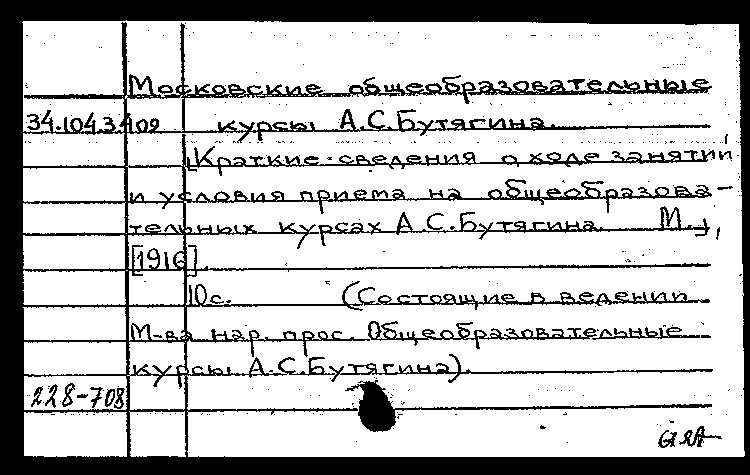 Московские общеобразовательные
34.104.3.109 курсы А.С.Бутягина.
[Краткие сведения о ходе занятий
и условия приема на общеобразова-
тельных курсах А.С.Бутягина. М.],
[1916].
10с. (Состоящие в ведении
М-ва нар. прос. Общеобразовательные
курсы А.С.Бутягина).
228-708